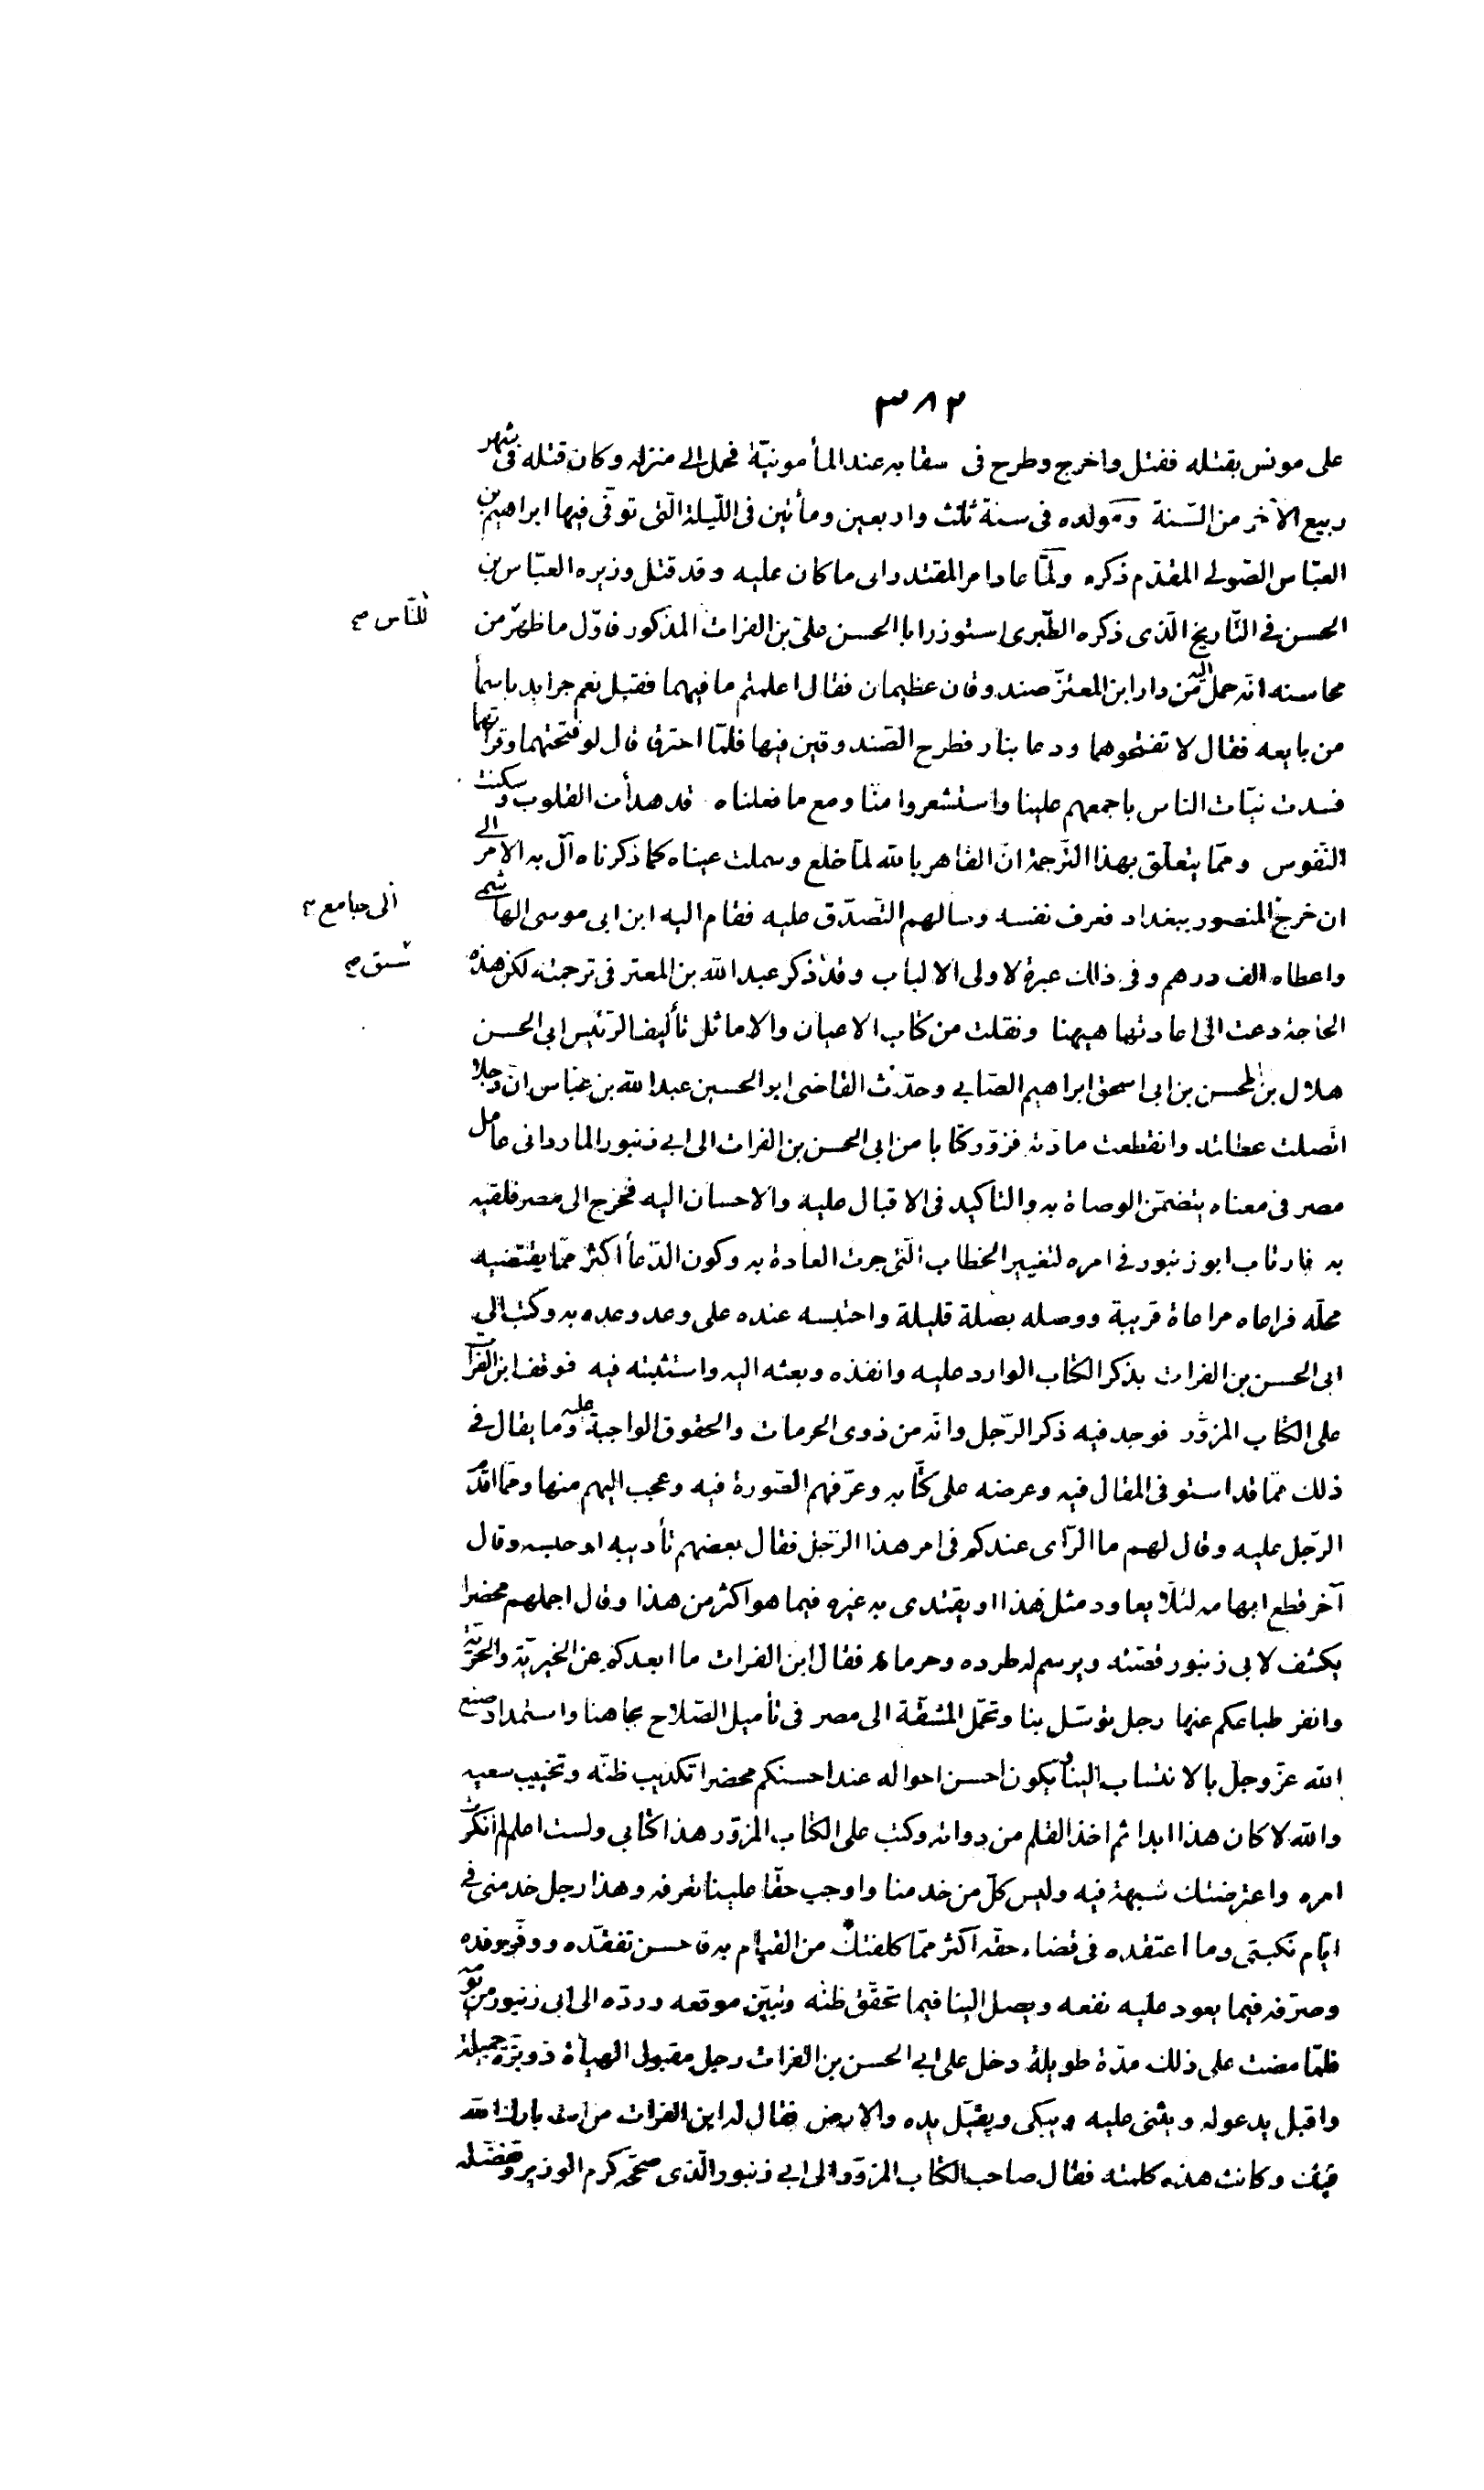 ٣٨٢
على مونس بقتله فقتل واخرج وطرح فى سقابه عند المأمونيّة فحمل الى منزله وكان قتله فى شهر
ربيع الآخر من السّنة ومولده فى سنة ثلث واربعين ومأتين فى اللّيلة الّتى توفّى فيها ابراهيم بن
العبّاس الصّولى المقدّم ذكره ولمّا عاد امر المقتدر الى ما كان عليه وقد قتل وزيره العبّاس بن
الحسن فى التّاريخ الّذى ذكره الطّبرى استوزر ابا الحسن علىّ بن الفرات المذكور فاوّل ما ظهر من
للنّاس صح
محاسنه انّه حمل اليه من دار ابن المعتزّ صندوقان عظيمان فقال اعلمتم ما فيهما فقيل نعم جرايد باسمأ
من بايعه فقال لا تفتحوهما ودعا بنار فطرح الصّندوقين فيها فلمّا احترقا قال لو فتحتهما وقرأتهما
فسدت نيّات الناس باجمعهم علينا واستشعروا منّا ومع ما فعلناه قد هدأت القلوب وسكنت
النّفوس وممّا يتعلّق بهذا التّرجمة انّ القاهر بالله لمّا خلع وسملت عيناه كما ذكرناه آل به الامر الى
ان خرج المنصور ببغداد فعرف نفسه وسالهم التّصدّق عليه فقام اليه ابن ابى موسى الهاشمى
الى جامع صح
واعطاه الف درهم وفى ذالك عبرة لاولى الالباب وقد ذكر عبد الله بن المعتز فى ترجمته لكن هذه
سبق صح
الحاجة دعت الى اعادتها هيهنا ونقلت من كتاب الاعيان والاماثل تأليف الرّئيس ابى الحسن
هلال بن المحسن بن ابى اسحق ابراهيم الصّابى وحدّث القاضى ابو الحسين عبد الله بن عبّاس انّ رجلا
اتّصلت عطلته وانقطعت مادّته فزوّر كتابا من ابى الحسن بن الفرات الى ابى زنبور الماردانى عامل
مصر فى معناه يتضمّن الوصاة به والتاكيد فى الاقبال عليه والاحسان اليه فخرج الى مصر فلقيه
به فارتاب ابو زنبور فى امره لتغيير الخطاب الّتى جرت العادة به وكون الدّعأ اكثر ممّا يقتضيه
محلّه فراعاه مراعاة قريبة ووصله بصلة قليلة واحتبسه عنده على وعد وعده به وكتب الى
ابى الحسن بن الفرات يذكر الكتاب الوارد عليه وانفذه وبعثه اليه واستثبته فيه فوقف ابن الفرات
على الكتاب المزوّر فوجد فيه ذكر الرّجل وانّه من ذوى الحرمات والحقوق الواجبة عليه وما يقال فى
ذلك ممّا قد استوفى المقال فيه وعرضه على كتّابه وعرّفهم الصّورة فيه وعجب اليهم منها وممّا اقدم
الرّجل عليه وقال لهم ما الرّأى عندكم فى امر هذا الرّجل فقال بعضهم تأديبه او حبسه وقال
آخر قطع ابهامه لئلّا يعاود مثل هذا او يقتدى به غيره فيما هو اكثر من هذا وقال اجملهم محضرا
يكشف لابى زنبور قصّته ويرسم له طرده وحرمانه فقال ابن الفرات ما ابعدكم عن الخيريّة والحريّة
وانفر طباعكم عنها رجل توسّل بنا وتحمّل المشقّة الى مصر فى تأميل الصّلاح بجاهنا واستمداد صنع
الله عزّ وجلّ بالانتساب الينا ويكون احسن احواله عند احسنكم محضرا تكذيب ظنّه وتخييب سعيه
والله لا كان هذا ابدا ثم اخذ القلم من دواته وكتب على الكتاب المزوّر هذا كتابى ولست اعلم لم انكرت
امره واعترضتك شبهة فيه وليس كلّ من خدمنا واوجب حقّا علينا نعرفه وهذا رجل خدمنى فى
ايّام نكبتى وما اعتقده فى قضاء حقّه اكثر ممّا كلفتك من القيام به فاحسن تفقّده ووفّر وفده
وصرّفه فيما يعود عليه نفعه ويصل الينا فيما تحقّق ظنّه وتبيّن موقعه وردّه الى ابى زنبور من يومه
فلمّا مضت على ذلك مدّة طويلة دخل على ابى الحسن بن الفرات رجل مقبول الهيأة ذو بزّة جميلة
واقبل يدعو له ويثنى عليه ويبكى ويقبّل يده والارض فقال له ابن الفرات من انت بارك الله
فيك وكانت هذه كلمته فقال صاحب الكتاب المزوّر الى ابى زنبور الّذى صحّحه كرم الوزير وتفضّله